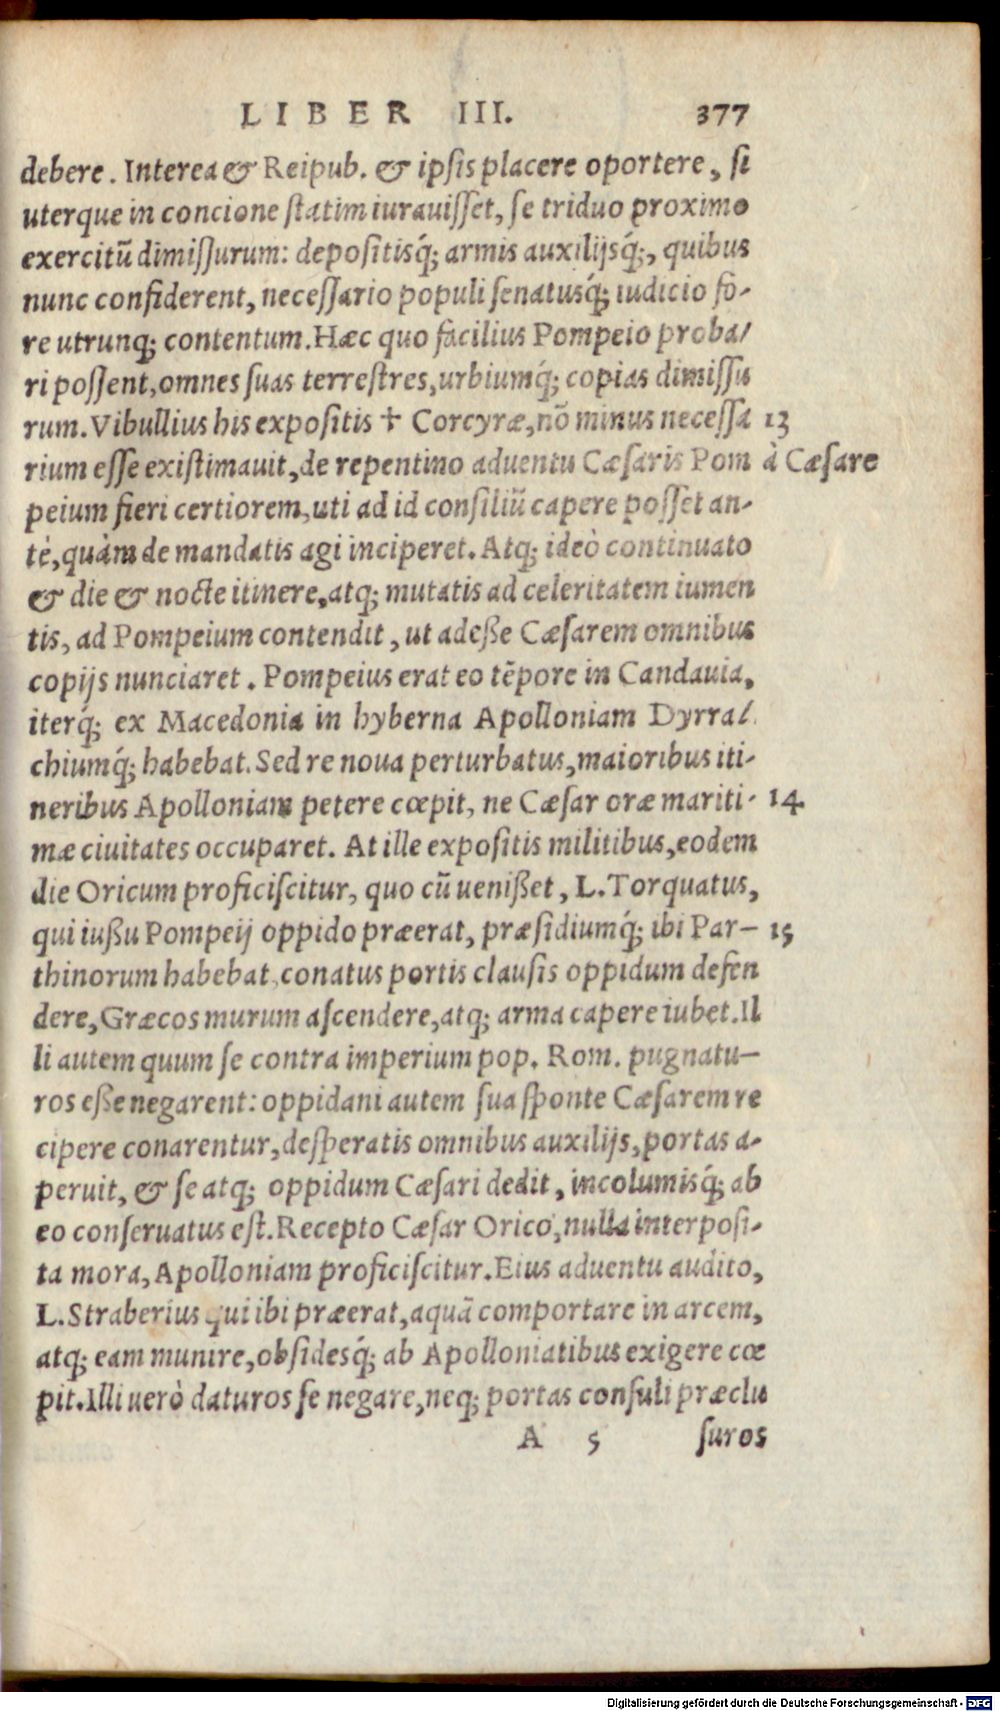 LIBER III. 377
debere. Interea & Reipub. & ipsis placere oportere, si
uterque in concione statim iurauisset, se triduo proximo
exercitū dimissurum: depositisq́; armis auxilijsq́;, quibus
nunc confiderent, necessario populi senatusq́; iudicio fo-
re utrunq; contentum. Hæc quo facilius Pompeio proba/
ri possent, omnes suas terrestres, urbiumq́; copias dimissu
rum. Vibullius his expositis + Corcyræ, nō minus necessa 13
rium esse existimauit, de repentino aduentu Cæsaris Pom à Cæsare
peium fieri certiorem, uti ad id consiliū capere posset an-
tè, quàm de mandatis agi inciperet. Atq; ideò continuato
& die & nocte itinere, atq; mutatis ad celeritatem iumen
tis, ad Pompeium contendit, ut adeße Cæsarem omnibus
copijs nunciaret. Pompeius erat eo tēpore in Candauia,
iterq́; ex Macedonia in hyberna Apolloniam Dyrra/
chiumq́; habebat. Sed re noua perturbatus, maioribus iti-
neribus Apolloniam petere cœpit, ne Cæsar oræ mariti- 14
mæ ciuitates occuparet. At ille expositis militibus, eodem
die Oricum proficiscitur, quo cū uenißet, L. Torquatus,
qui iußu Pompeij oppido præerat, præsidiumq́; ibi Par- 15
thinorum habebat, conatus portis clausis oppidum defen
dere, Græcos murum ascendere, atq; arma capere iubet. Il
li autem quum se contra imperium pop. Rom. pugnatu-
ros eße negarent: oppidani autem sua sponte Cæsarem re
cipere conarentur, desperatis omnibus auxilijs, portas a-
peruit, & se atq; oppidum Cæsari dedit, incolumisq́; ab
eo conseruatus est. Recepto Cæsar Orico, nulla interposi-
ta mora, Apolloniam proficiscitur. Eius aduentu audito,
L. Straberius qui ibi præerat, aquā comportare in arcem,
atq; eam munire, obsidesq́; ab Apolloniatibus exigere cœ
pit. Illi uerò daturos se negare, neq; portas consuli præclu
A 5 suros
Digitalisierung gefördert durch die Deutsche Forschungsgemeinschaft - DFG